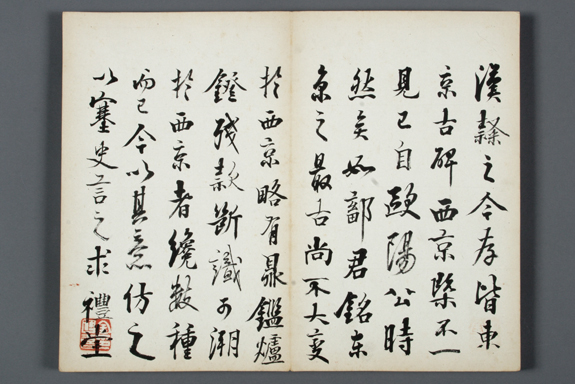 漢隸之今存皆東
京古碑西京槩不一
見已自歐陽公時
然矣如鄐君銘東
京之最古尚不大變
於西京略有鼎鑑爐
鐙殘款斷識可溯
於西京者纔數種
而已今以其意仿之
以塞史言之求
禮堂